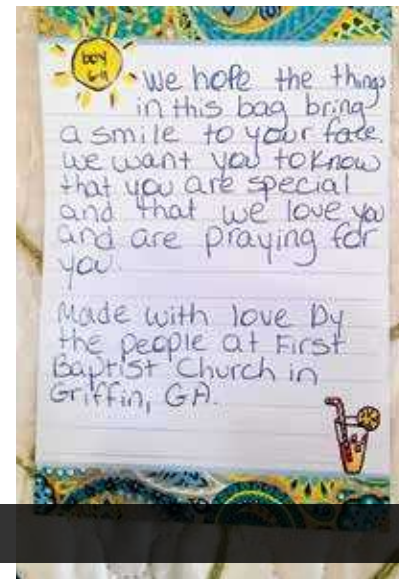 boy
6-9
We hope the things
in this bag bring
a smile to your face.
we want you to know
that you are special
and that we love you
and are praying for
you.
Made with love by
the people at First
Baptist Church in
Griffin, GA.